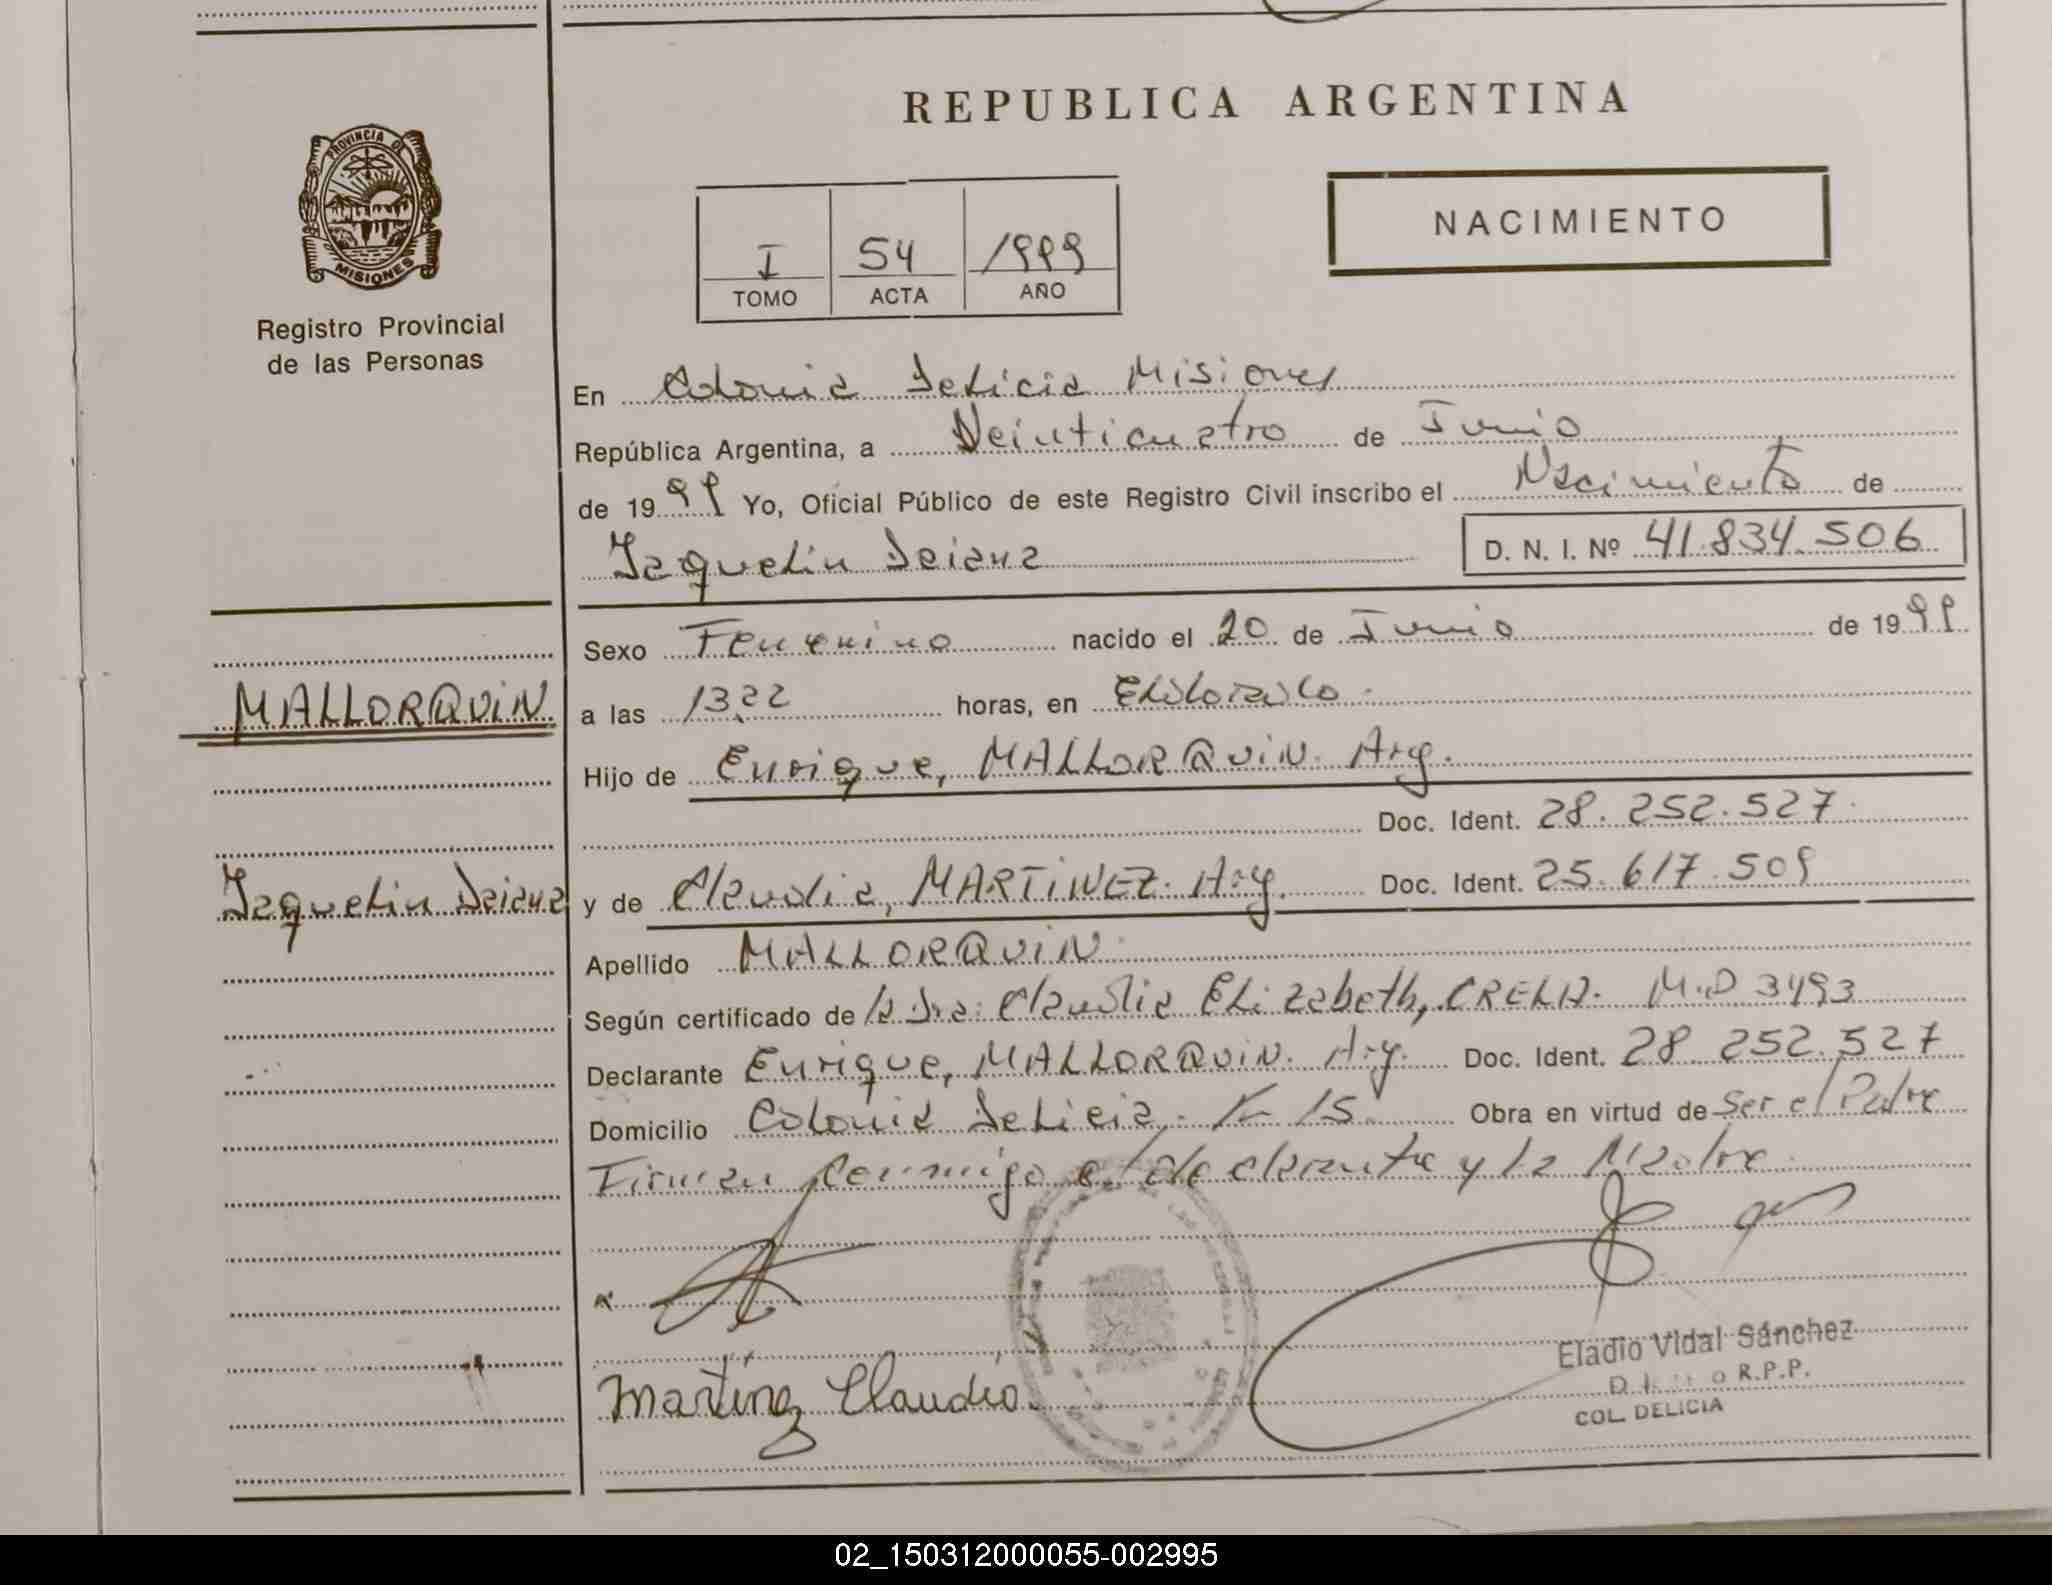 REPUBLICA ARGENTINA
PROVINCIA DE
MISIONES
Registro Provincial
de las Personas
I 54 1999
TOMO ACTA AÑO
NACIMIENTO
En Colonia Delicia Misiones
República Argentina, a Veinticuatro de Junio
de 1999 Yo, Oficial Público de este Registro Civil inscribo el Nacimiento de
Jaquelin Daiana D. N. I. Nº 41.834.506
Sexo Femenino nacido el 20 de Junio de 1999
MALLORQUiN a las 1322 horas, en Eldorado.
Hijo de Enrique, MALLORQUiN. Arg.
Doc. Ident. 28.252.527.
Jaquelin Daiana y de Claudia, MARTiNEZ. Arg. Doc. Ident. 25.617.509
Apellido MALLORQUiN.
Según certificado de la Dra. Claudia Elizabeth, M.P 3493
Declarante Enrique, MALLORQUiN. Arg. Doc. Ident. 28.252.527
Domicilio Colonia Delicia. K 15. Obra en virtud de Ser el Padre
Firman Conmigo el declarante y la Madre.
Martinez Claudia.
Eladio Vidal Sánchez
R.P.P.
COL. DELICIA
02_150312000055-002995